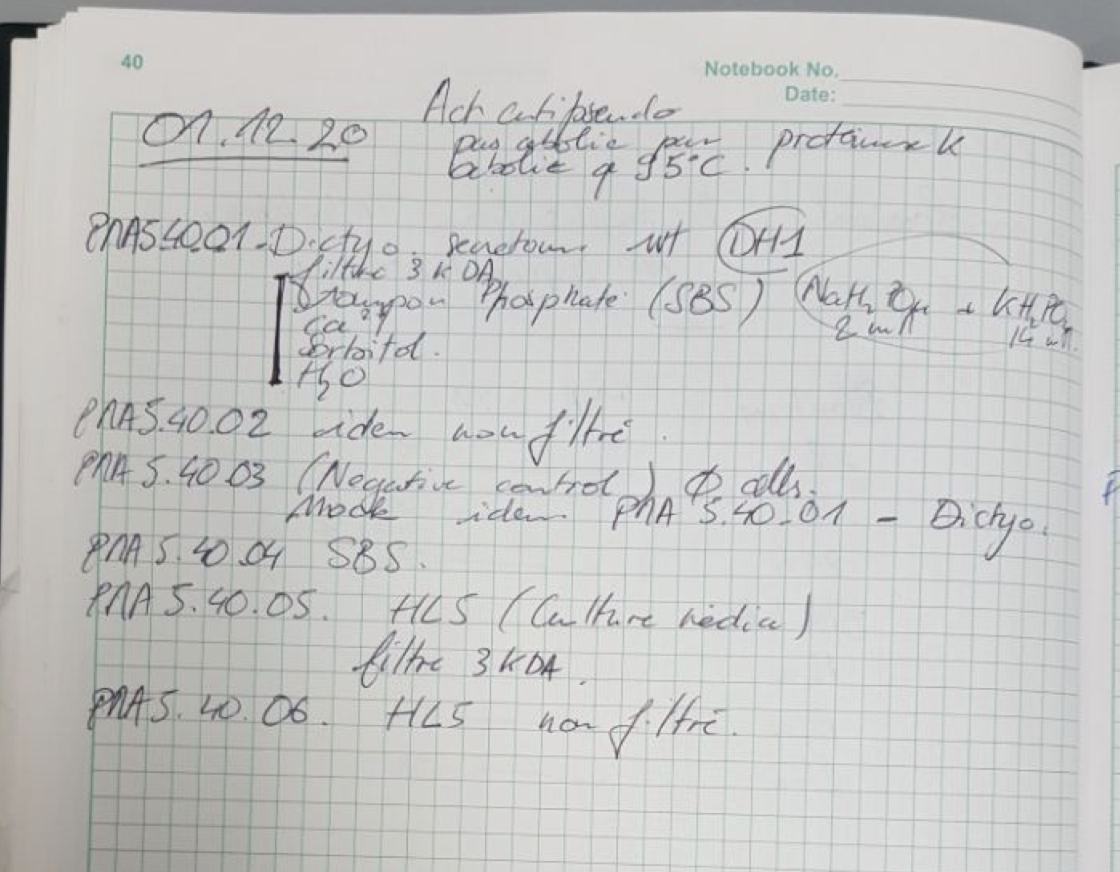 40
Notebook No.
Date:
01.12.20
Act antipseudo
pas abolie par protéinase K
abolie q 95°C.
PMA5.40.01 - Dictyo. secretome wt DH1
filtré 3 KDA
tampon Phosphate (SBS) NaH2PO4 + KH2PO4
Ca 2+ 2 mM 14 mM.
Sorbitol.
H2O
PMA5.40.02 idem non filtré.
PMA 5.40.03 (Negative control) Φ cells.
Mock idem PMA 5.40.01 - Dictyo.
PMA 5.40.04 SBS.
PMA 5.40.05. HL5 (Culture media)
filtré 3 KDA.
PMA5.40.06. HL5 non filtré.